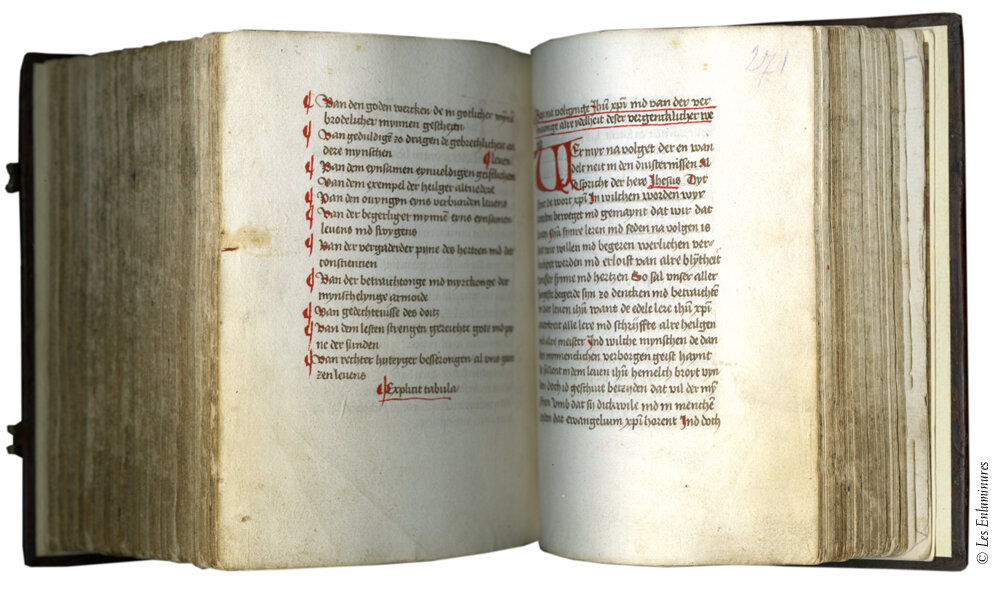 Van den goden wercken de in gotlicher mÿnē
brodelicher mynnen geschein
Van geduldigē zo dragen de gebrechlicheit an
dere mynschen
Van dem eynsamen eynueldigen geistlichem
leuen
Van dem exempel der heilger altuedere
Van den ouyngyn eyns verbunden leuens
Van der begerliger mynnē eyns eynsamen
leuens ind swygens
Van der vergaderder pyne des hertzen ind der
conscientien
Van der betrachtonge ind myrckonge der
mynschelynge armode
Van gedechtnisse des doitz
Van dem lesten strengen gerichte gotz ind
ne der sunden
Van rechter hitzyger besserongen al vns gan
zen leuens
Explicit tabula
271
na volgynge Ihū xpī ind van der ver
alre ydelheit deser vergencklicher we
WEr myr na volget der en wan
delt neit in den duisternissen Al
spricht der here Ihesus Dyt
de wort xpī In wilchen worden wyr
beweget ind gemaynt dat wir dat
ind seden na volgen is
willen ind begeren werlichen ver
werden ind erloist van alre blÿtheit
synne ind hertzen So sal vnser aller
begerde syn zo dencken ind betrachtē
leuen ihū want de edele lere ihū xpī
alle lere ind schrÿffte alre heilgen
alle meister Ind wilche mynschen de dan
mynnenclichen verborgen geist haynt
in dem leuen ihū hemelch broyt vyn
doch id geschuit bezijden dat vil der mÿ
vmb dat sij dickwile ind in menchē
dat ewangelium xpī horent Ind doch
© Les Enluminures